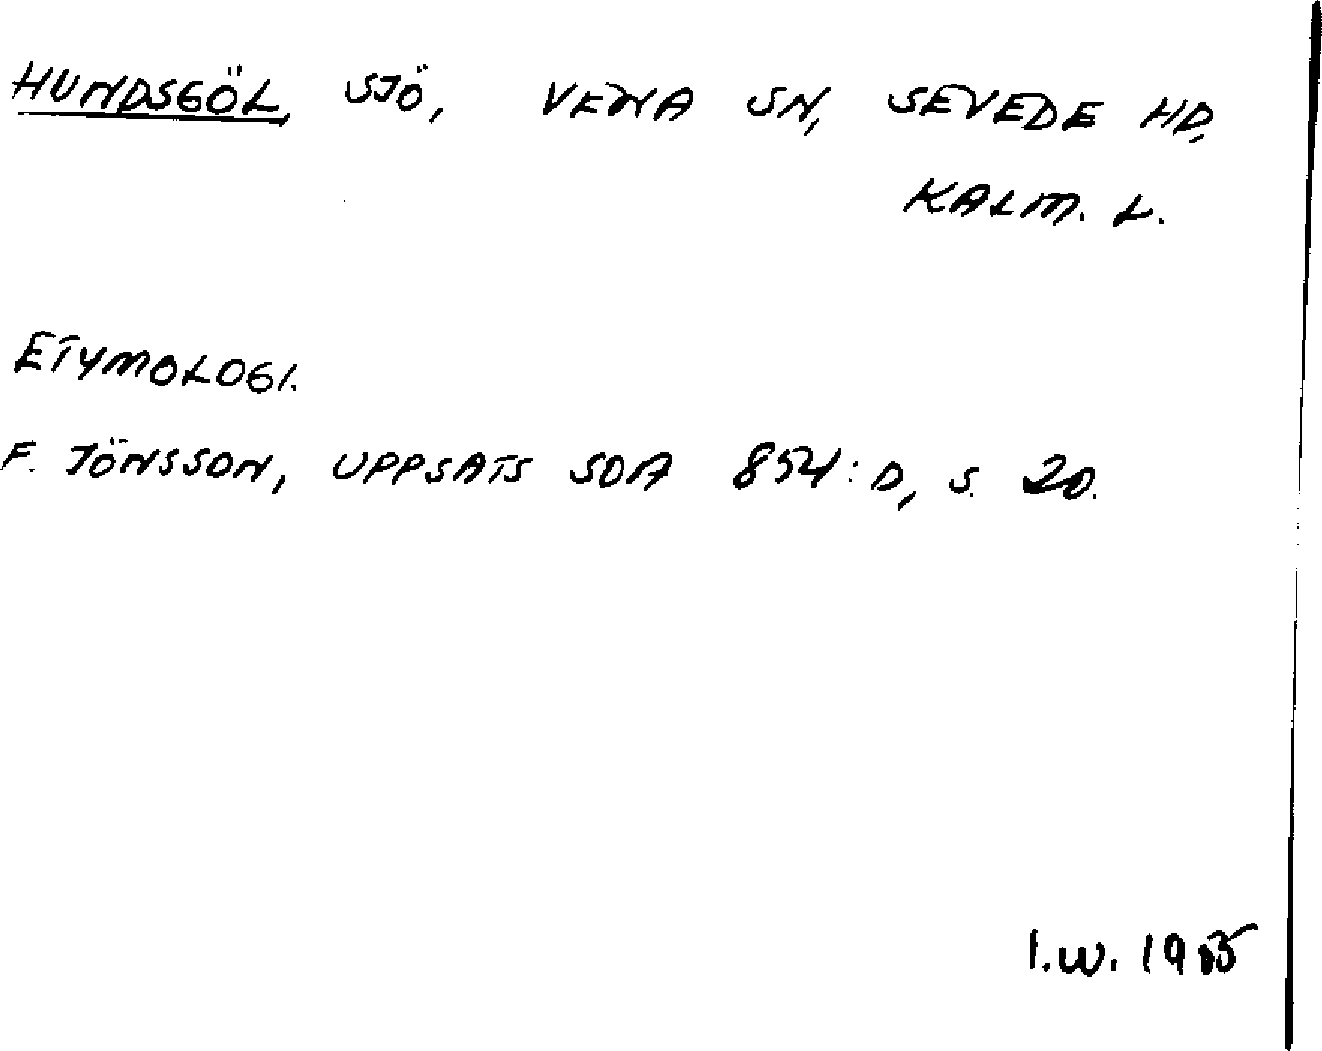 HUNDSGÖL, SJÖ, VENA SN, SEVEDE HD,
KALM. L.
ETYMOLOGI.
F. JÖNSSON, UPPSATS SOA 854:D, S. 20.
I.W.